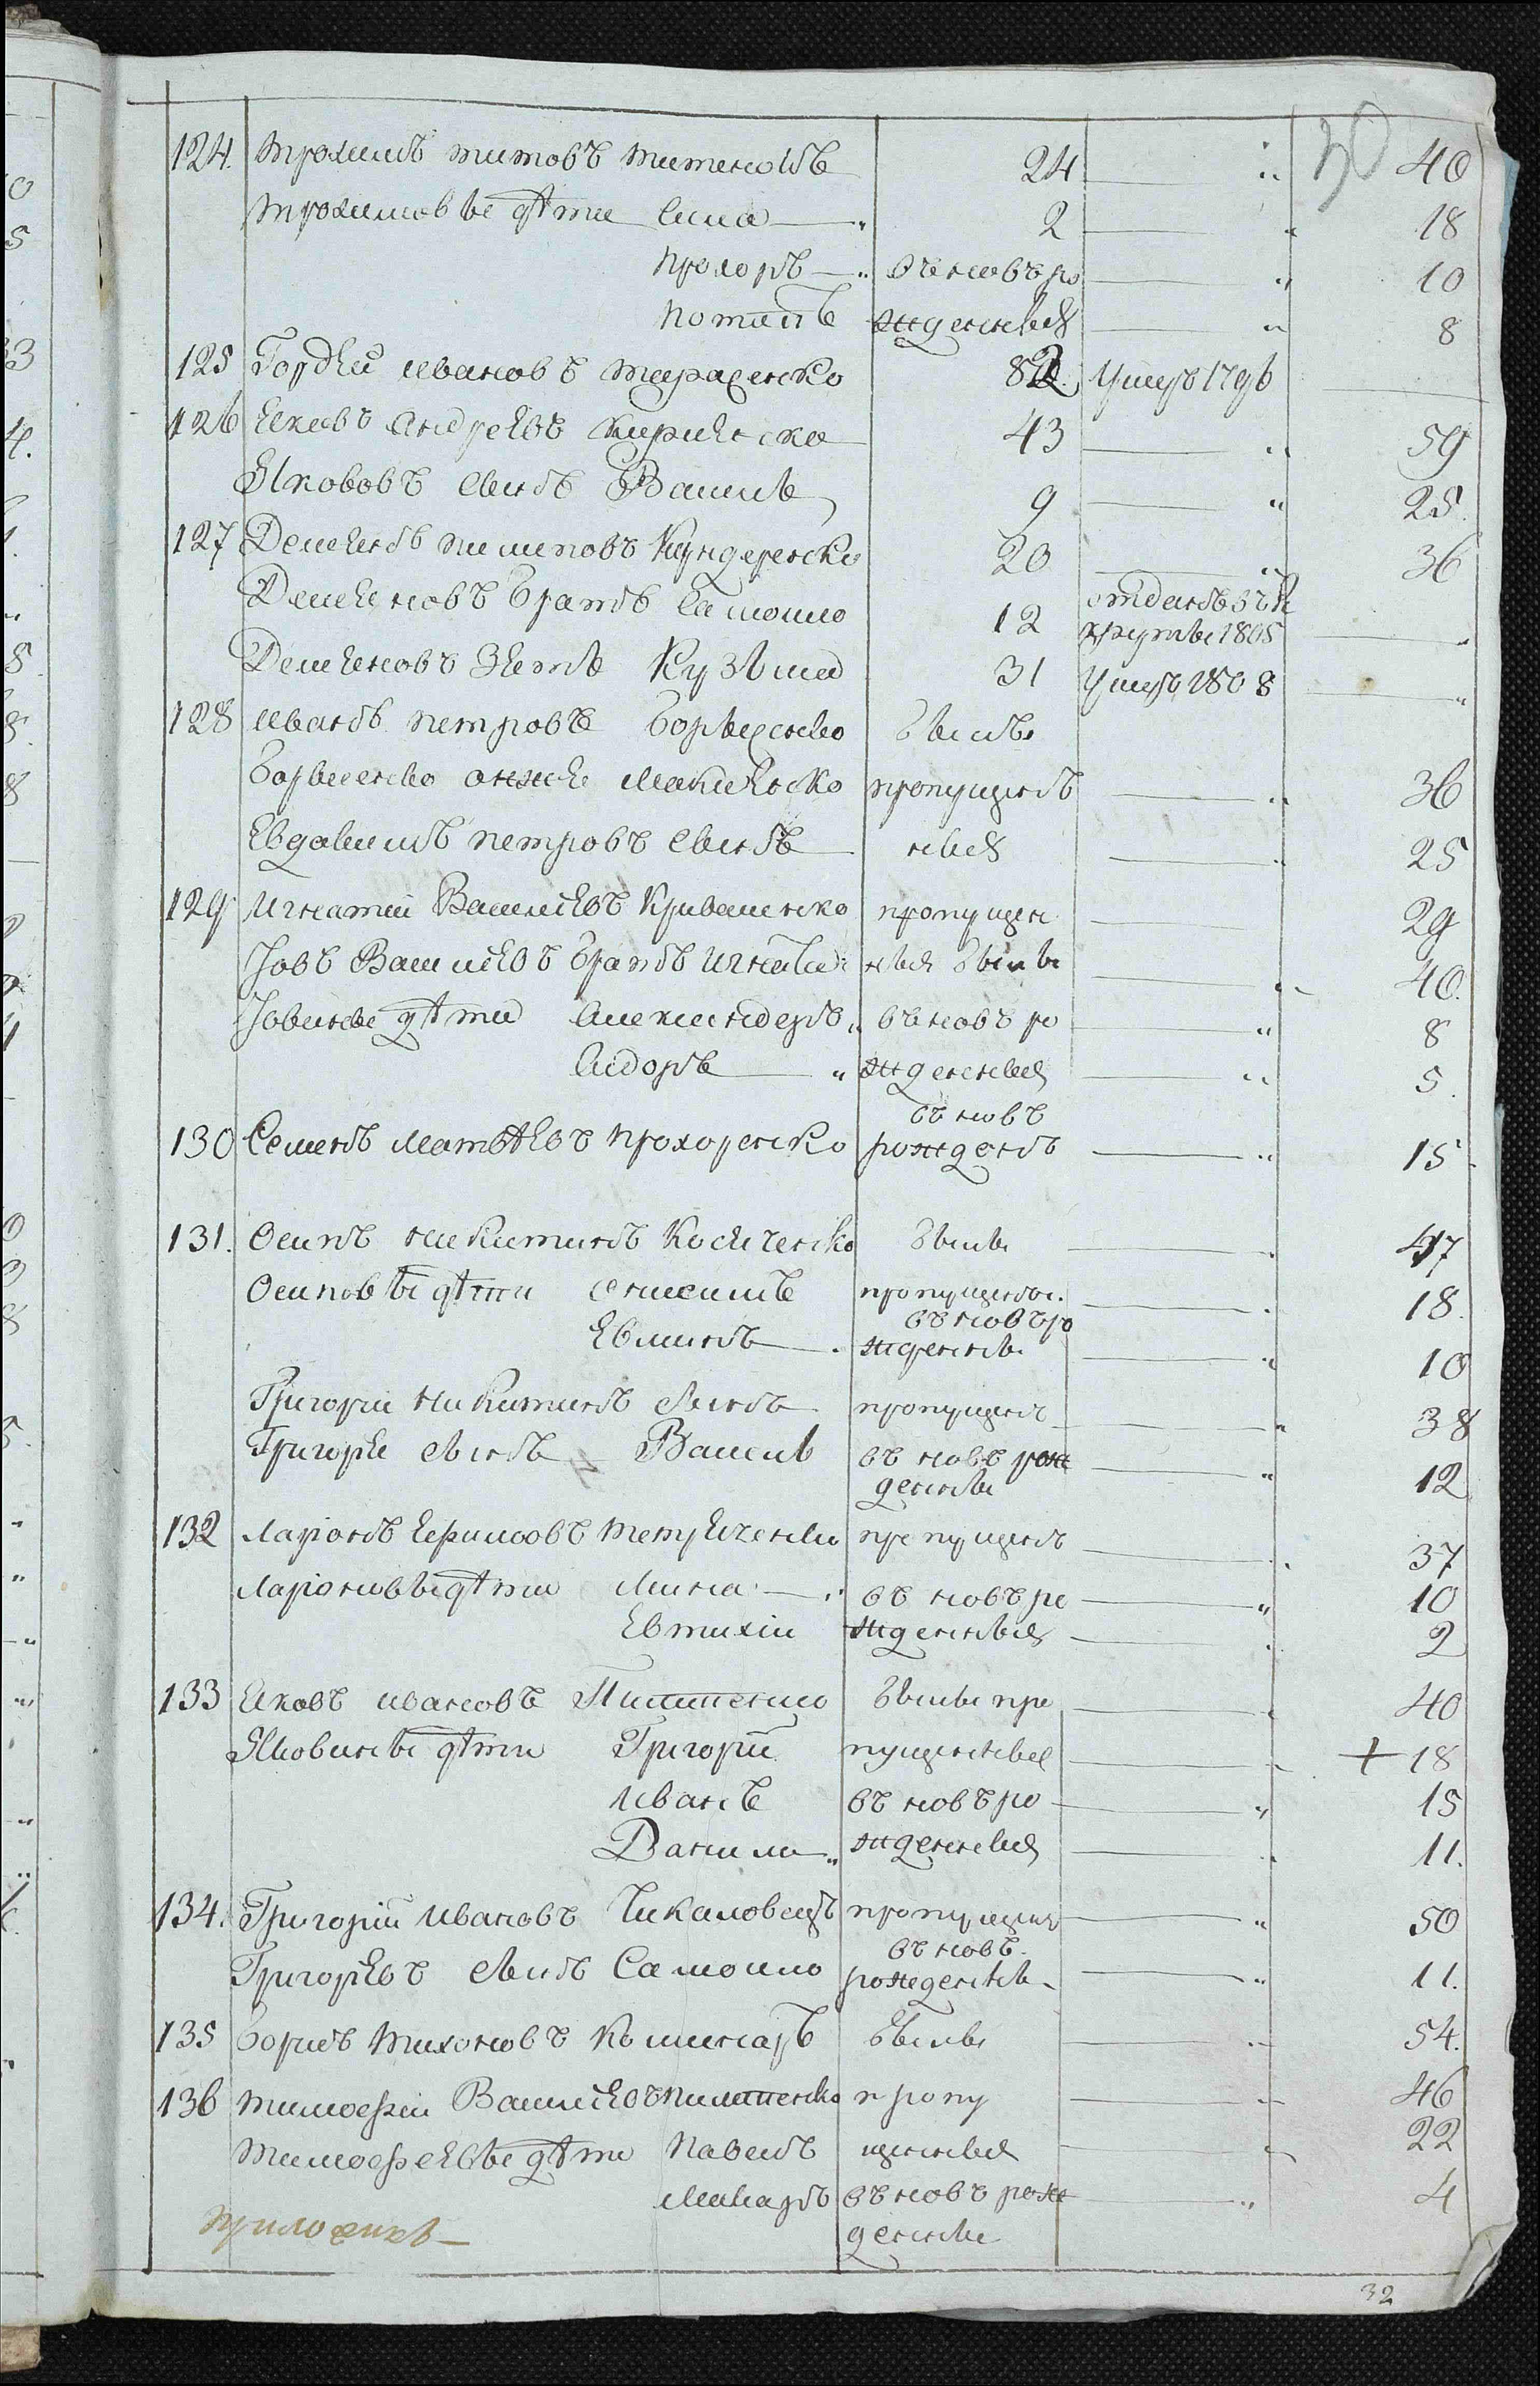 30
124. Трохимъ титовъ титенокъ 24 " 40
трохимовы дѣти Сила " 2 " 18
прохоръ " въновъ ро " 10
потапъ жденныя " 8
125 Гордѣй ивановъ тарасенко 82. умеръ 1796
126 Яковъ Андреевъ Кириенко 43 " 59
Якововъ сынъ Василь 9 " 25.
127 Дементъ пилиповъ Кундеренко 20 " 36
братъ Самойло 12 отданъ въ рекруты 1805 "
зять Кузьма 31 умеръ 1808 "
128 иванъ петровъ Борысенко былъ
Борысенко онже Макиенко пропущенъ " 36
Евдокимъ петровъ сынъ ныя " 25
129 Игнатий Василиевъ Кривошенко пропущен 29
Іовъ Василиевъ братъ игнатъ ныя былы " 40.
Іовины дѣти Александеръ " въновъ ро " 8
Сидоръ " жденныя " 5.
въ новъ
130 Семенъ матвѣевъ прохоренко рожденъ " 15
131. Осипъ никитинъ былы " 47
Осиповы дѣти онисимъ пропущены. " 18.
въ новъ ро
жденны " 10
Григорий никитинъ сынъ пропущенъ " 38
Григорие сынъ Василь въ новъ рож " 12
денны
132 Ларіонъ пропущенъ " 37
Ларіоновы дѣти Мина " въ новъ ро " 10
Евтихіи жденныя 2
133 Яковъ ивановъ Пилипенко былы про " 40
Яковины дѣти Григорій пущенные + 18
иванъ въ новъ ро " 15
Данило " жденныя " 11.
134. Григорій ивановъ Чикаловецъ пропущенъ " 50
въ новъ.
Григорѣевъ сынъ Самойло рожденны " 11.
135 Борисъ тихоновъ Комисаръ былы " 54.
136 тимофей Василиевъ пилипенко пропу " 46
тимофеевы дѣти Павелъ щенныя " 22
Макаръ въ новъ рож " 4
денны
32